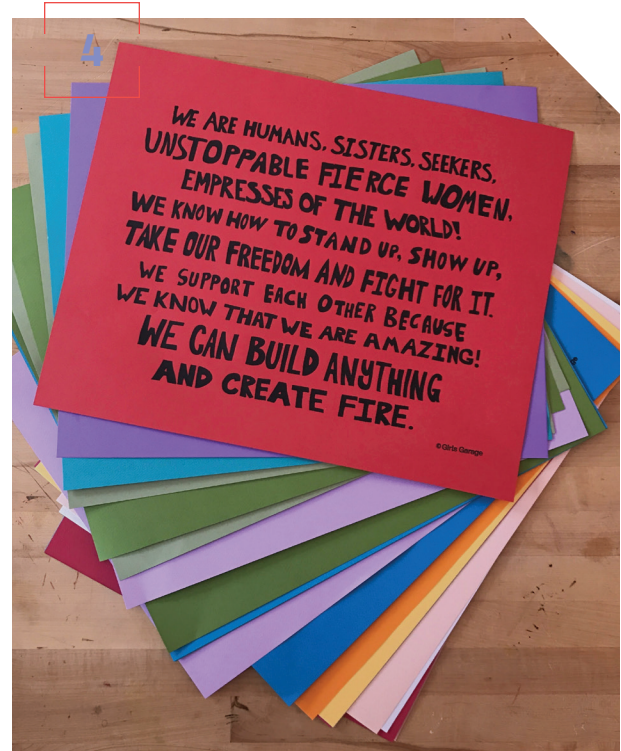 4
WE ARE HUMANS, SISTERS, SEEKERS,
UNSTOPPABLE FIERCE WOMEN,
EMPRESSES OF THE WORLD!
WE KNOW HOW TO STAND UP, SHOW UP,
TAKE OUR FREEDOM AND FIGHT FOR IT.
WE SUPPORT EACH OTHER BECAUSE
WE KNOW THAT WE ARE AMAZING!
WE CAN BUILD ANYTHING
AND CREATE FIRE.
© Girls Garage